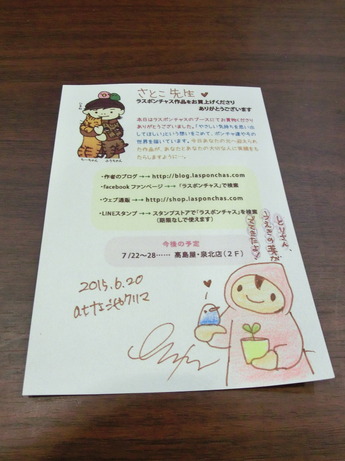 さとこ先生
ラスポンチャス作品をお買上げくださり
ありがとうございます
本日はラスポンチャスのブースにてお買物くださり
ありがとうございました。「やさしい気持ちを思い出
してほしい」という想いをこめて、ポンチャ達やその
世界を描いています。今日あなたの元へ迎えられ
た作品が、あなたとあなたの大切な人に笑顔をも
たらしますように…。
・作者のブログ →→ http://blog.lasponchas.com
・facebook ファンページ →→「ラスポンチャス」で検索
・ウェブ通販 →→ http://shop.lasponchas.com
・LINEスタンプ →→ スタンプストアで「ラスポンチャス」を検索
(期限なしで使えます)
今後の予定
7/22～28…… 高島屋・泉北店(2F)
2015.6.20